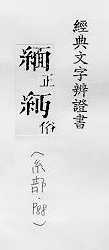 經典文字辨證書
緬正𦂀俗
(糸部·P88)